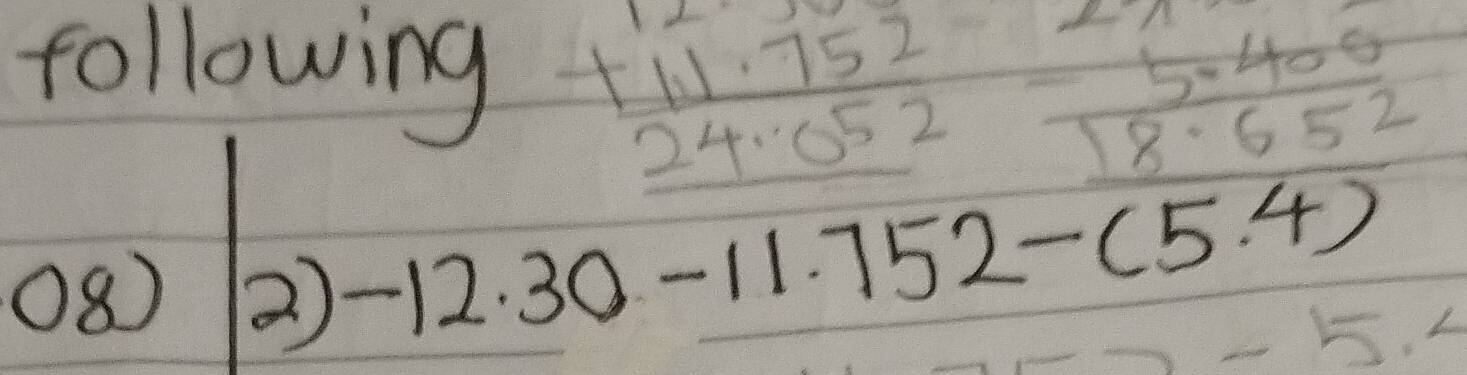 following
+11.752
24.052
- 5.400
18.652
08) 2) -12.30 -11.752-(5.4)
- 5.